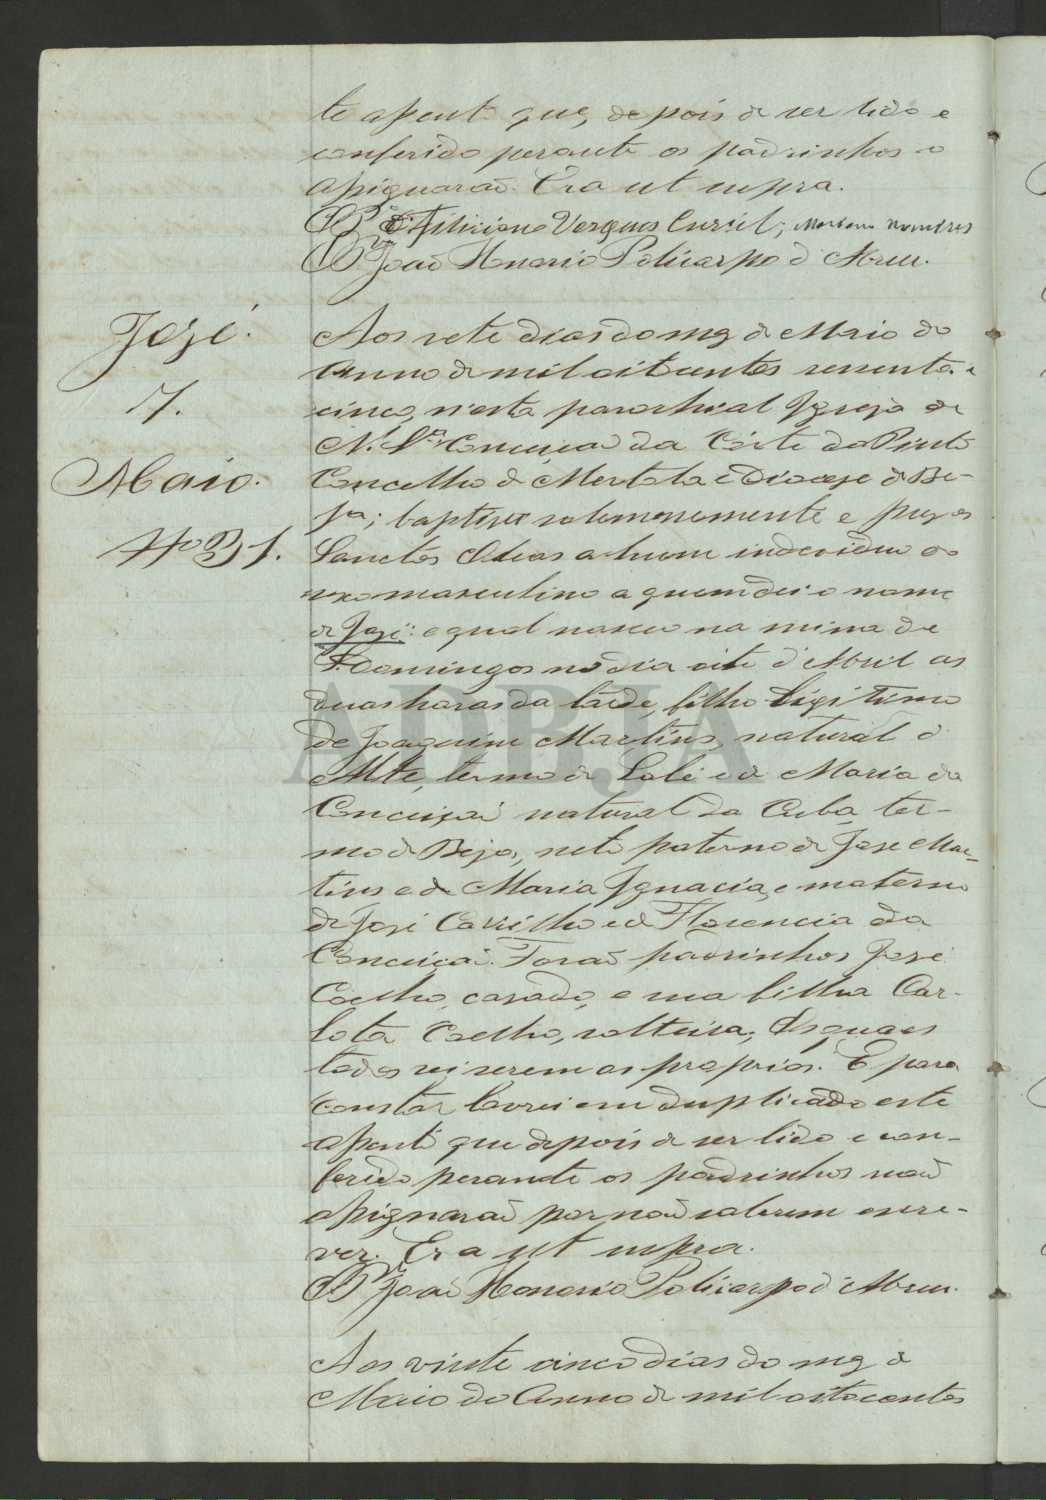 te assento que, depois de ser lido e
conferido perante os padrinhos o
assignarão. Era ut supra.
Feliciano Vasques Curiel;
O P.r João Honorio Policarpo d'Abreu.
José.
7.
Maio.
Nº 31.
Aos sete dias do mez de Maio do
anno de mil oitocentos sessenta e
cinco, n'esta parochial Igreja de
N. Sr.ª Conceição da Côrte do Pinto
Concelho de Mertola e Diocese de Be-
ja; baptizei solemnemente e puz os
Sanctos Oleos a hum individuo do
sexo masculino a quem dei o nome
de José: o qual nasceu na mina de
S. Domingos no dia oito d'Abril as
duas horas da tarde, filho legitimo
de Joaquim Martins, natural d'
Alte, termo de Lolé e de Maria da
Conceição natural da Cuba, ter-
mo de Beja, neto paterno de José Mar-
tins e de Maria Ignacia, e materno
de José Carrilho e de Florencia da
Conceição. Forão padrinhos José
Coelho, casado, e sua filha Car-
lota Coelho, solteira, Os quaes
todos sei serem os proprios. E para
constar lavrei em duplicado este
assento que depois de ser lido e con-
ferido perante os padrinhos não
assignarão por não saberem escre-
ver. Era ut supra.
O P.r João Honorio Policarpo d'Abreu.
Aos vinte cinco dias do mez de
Maio do Anno de mil oitocentos
ADBJA